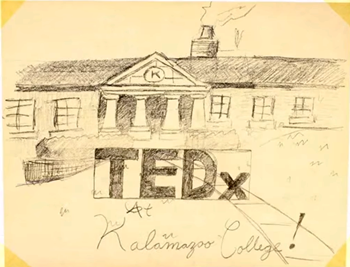 K
TEDx
At
Kalamazoo College!